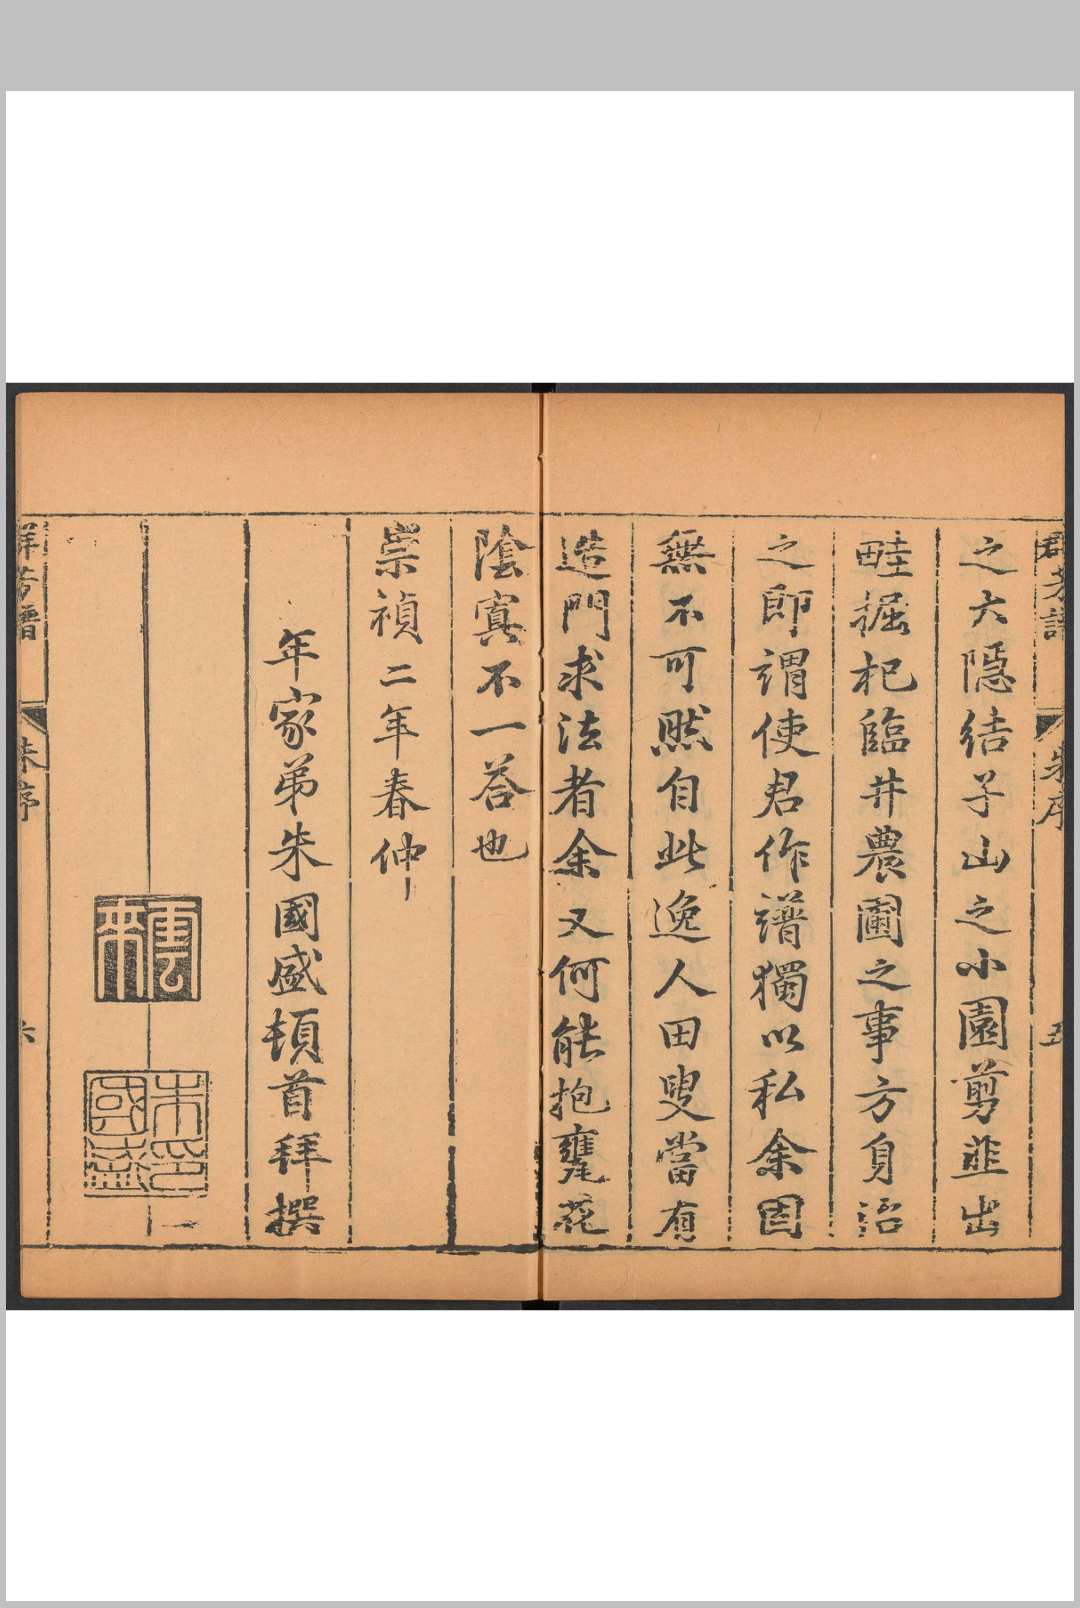 群芳譜 朱序 五
之大隱結子山之小園剪韭出
畦掘杞臨井農圃之事方身治
之即謂使君作譜獨以私余固
無不可然自此逸人田叟當有
造門求法者余又何能抱甕花
陰寘不一答也
崇禎二年春仲
年家弟朱國盛頓首拜撰
雲來
朱國盛印
群芳譜 朱序 六